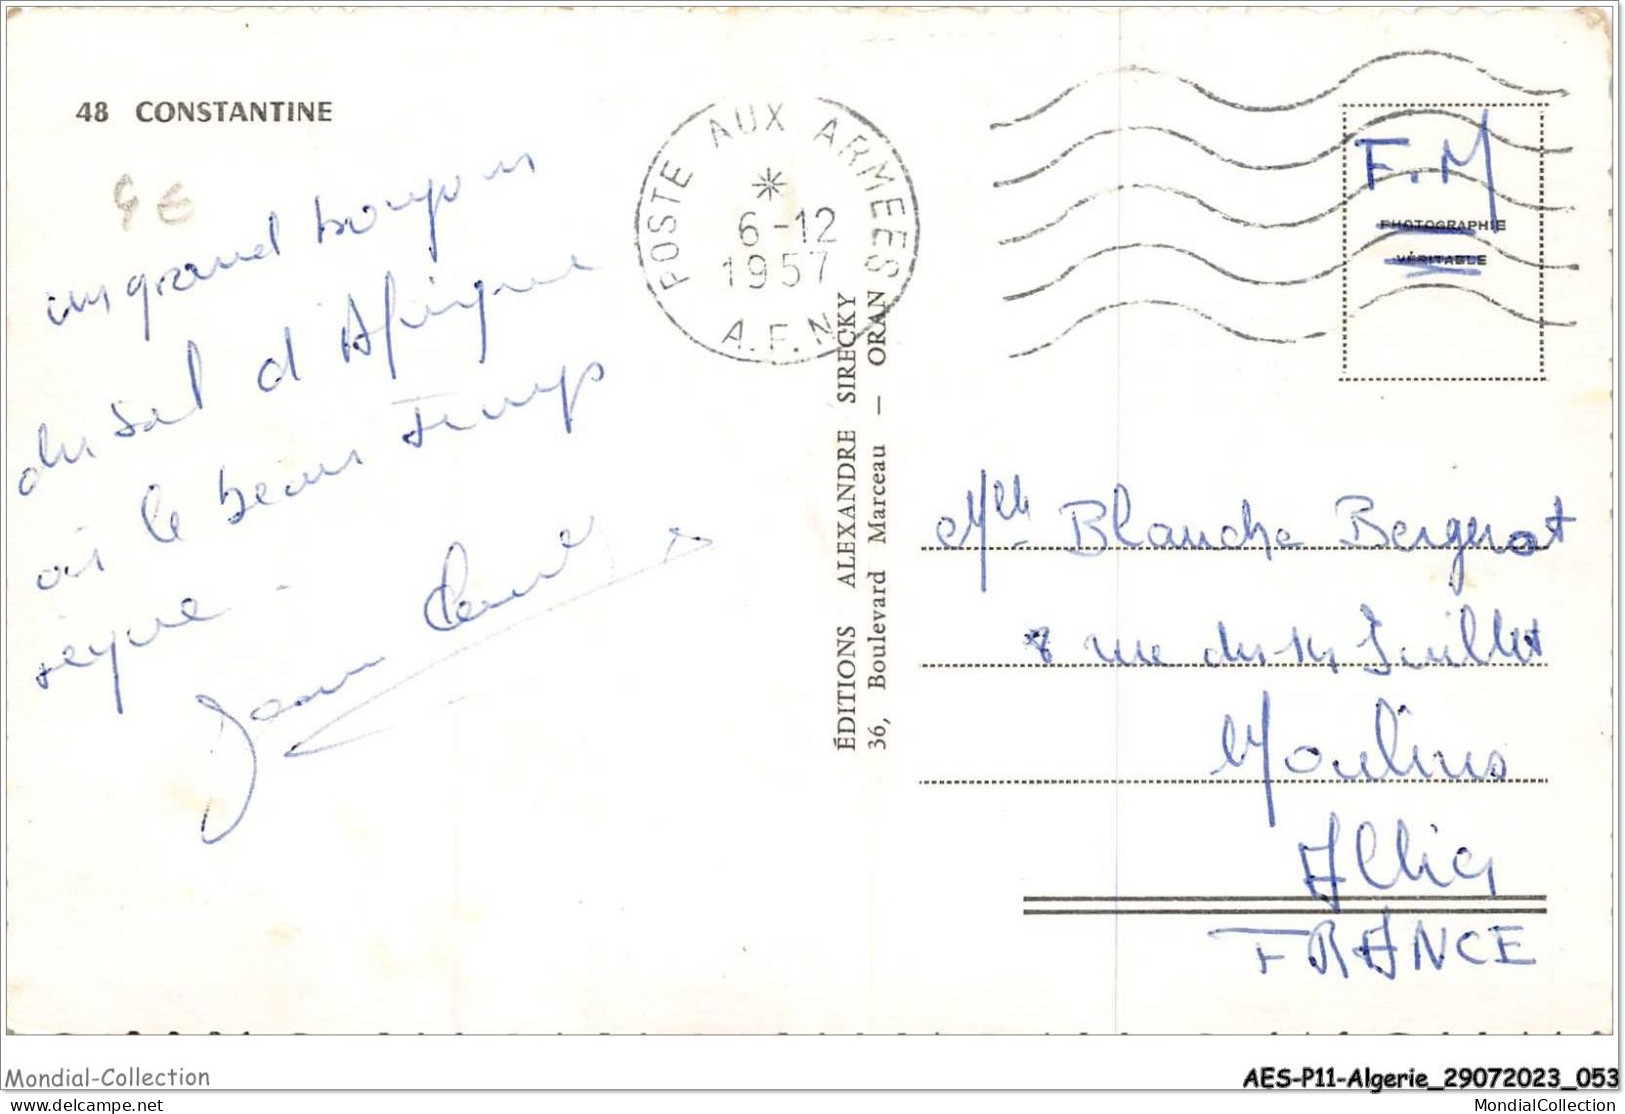 48 CONSTANTINE
4 €
un grand bonjour
du sol d'Afrique
où le beau temps
règne.
POSTE AUX ARMEES
6-12
1957
A.F.N
ÉDITIONS ALEXANDRE SIRECKY
36, Boulevard Marceau — ORAN
F.M
PHOTOGRAPHIE
VÉRITABLE
Mlle Blanche Bergerot
8 rue du 14 Juillet
Moulins
Allier
FRANCE
Mondial-Collection
AES-P11-Algerie_29072023_053
delcampe.net
MondialCollection